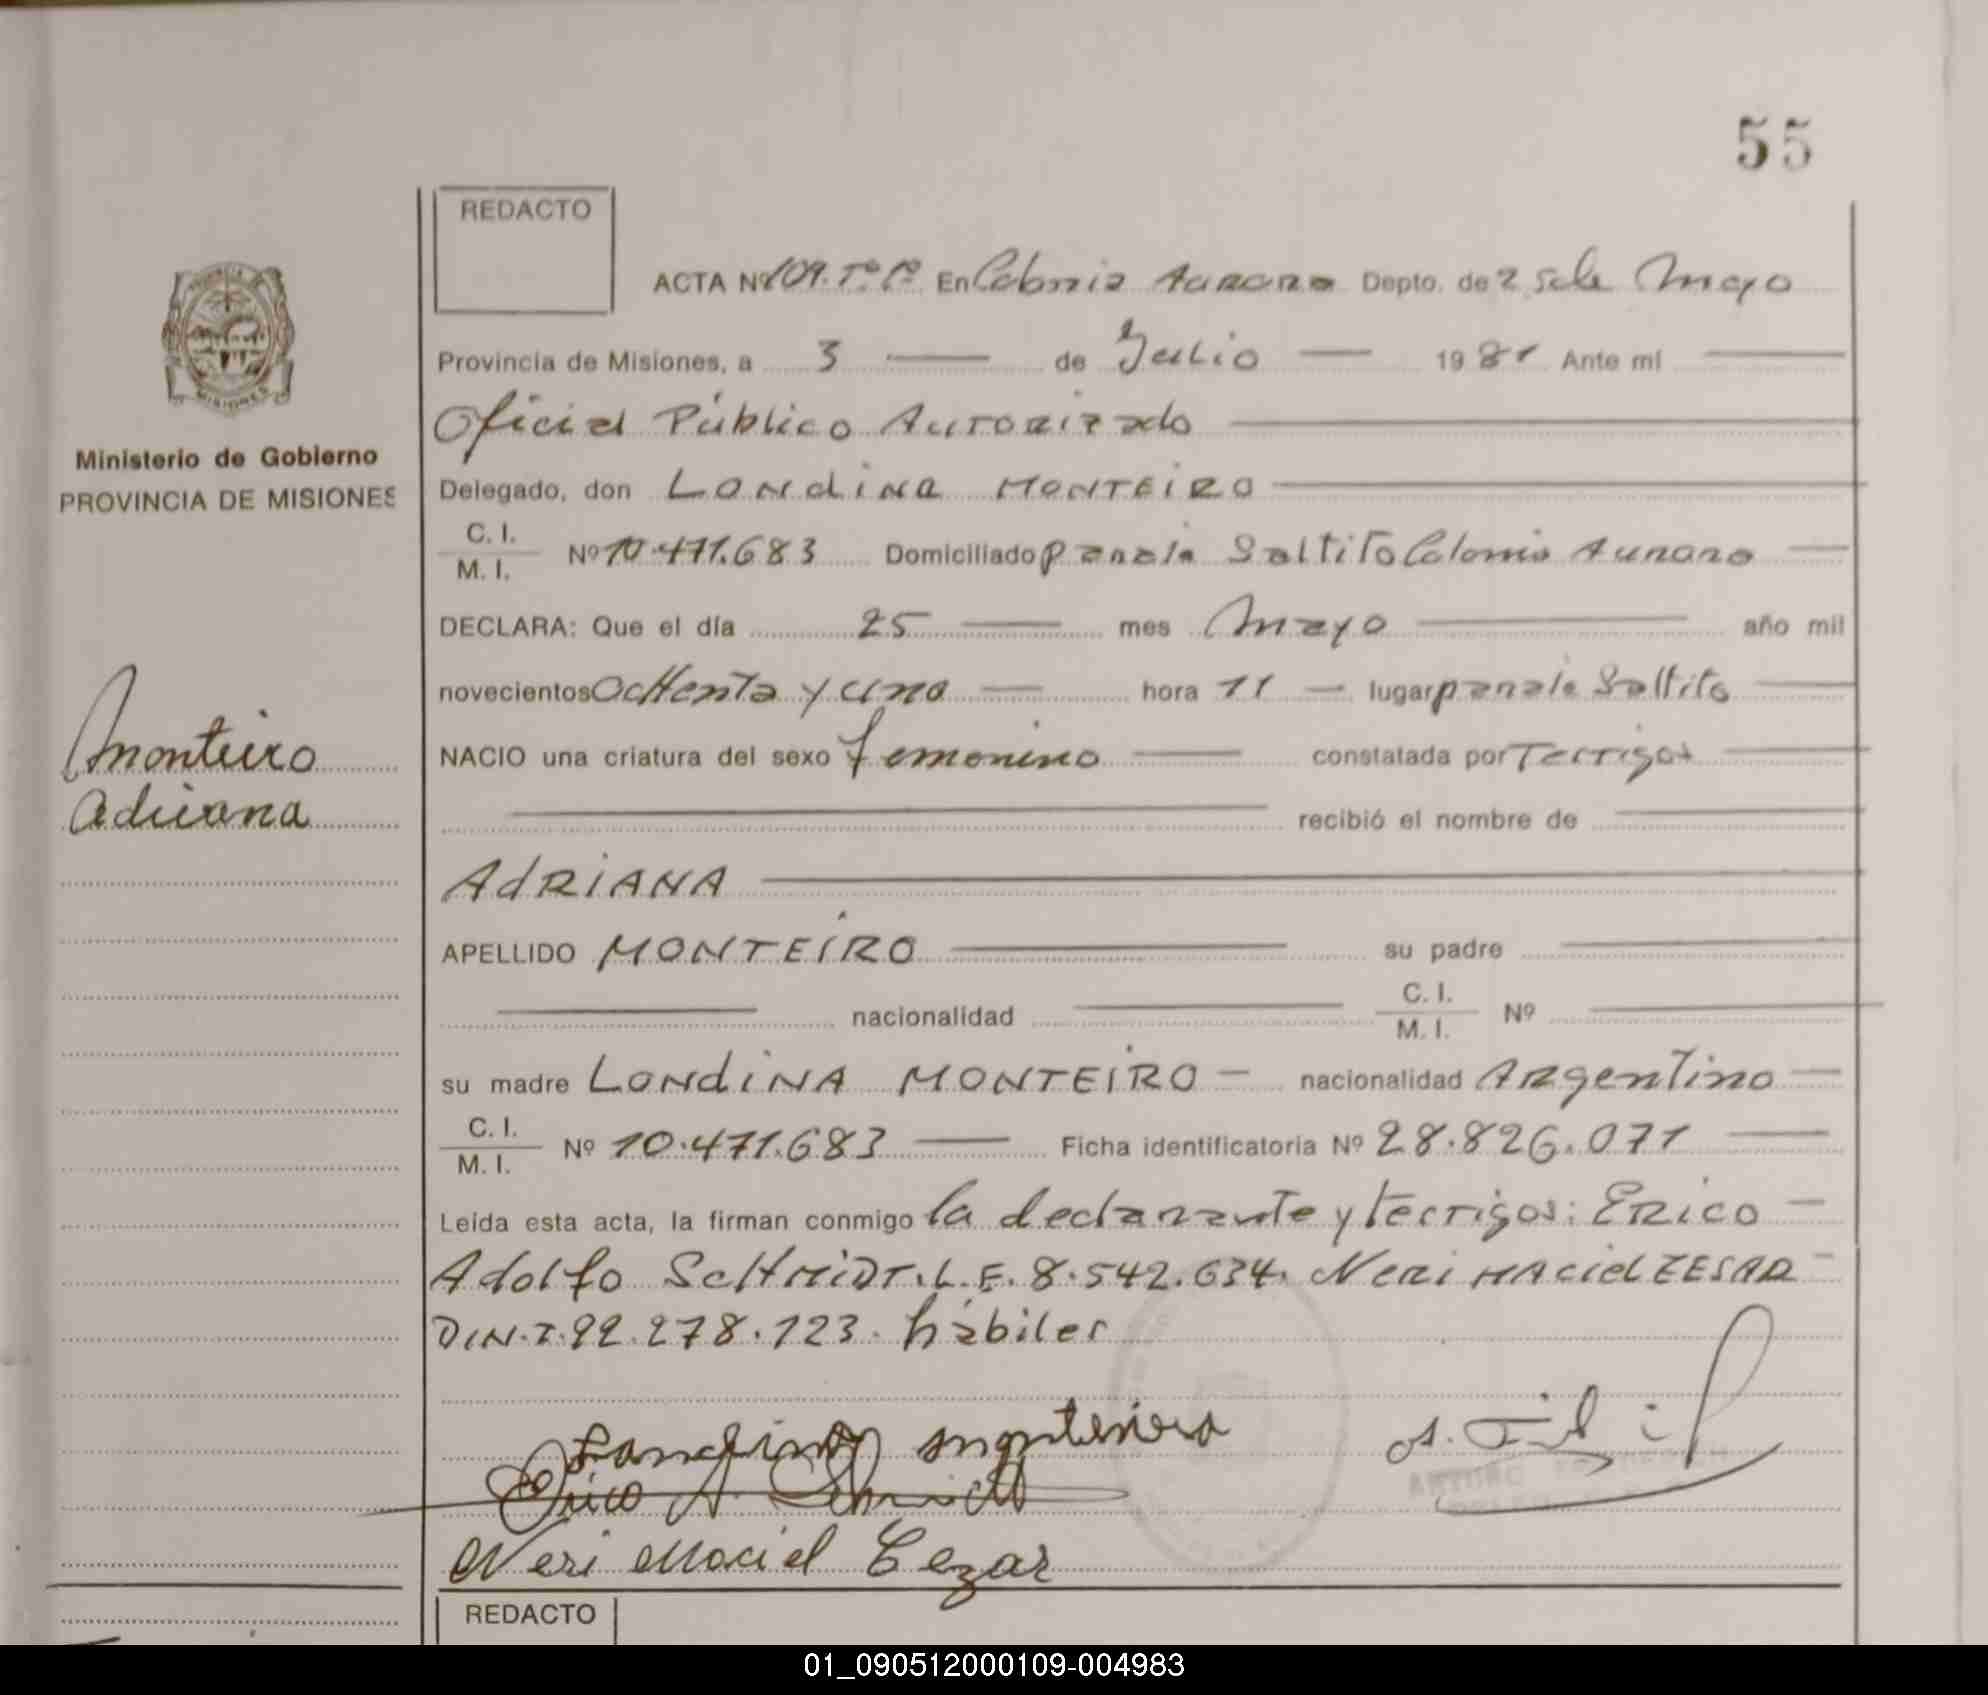 55
REDACTO
ACTA Nº 109. Tº 1º En Colonia Aurora Depto. de 25 de Mayo
Provincia de Misiones, a 3 de Julio 1981 Ante mí
Oficial Público Autorizado
Ministerio de Gobierno
PROVINCIA DE MISIONES
Delegado, don LONdiNA MONTEIRO
C. I.
M. I.
Nº 10.471.683 Domiciliado paraje Saltito Colonia Aurora
DECLARA: Que el día 25 mes Mayo año mil
novecientos Ochenta y uno hora 11 lugar paraje Saltito
Monteiro
Adriana
NACIO una criatura del sexo femenino constatada por Testigos
recibió el nombre de
AdRiANA
APELLIDO MONTEIRO su padre
nacionalidad C. I.
M. I. Nº
su madre LONdiNA MONTEIRO nacionalidad Argentino
C. I.
M. I.
Nº 10.471.683 Ficha identificatoria Nº 28.826.071
Leída esta acta, la firman conmigo la declarante y testigos: ERico
Adolfo ScHMiDT. L.E. 8.542.634. Neri MAciel CESAR
D.N.I. 92.278.123. hábiles
Erico A. Schmidt
Neri Maciel Cezar
ARTURO
REDACTO
01_090512000109-004983